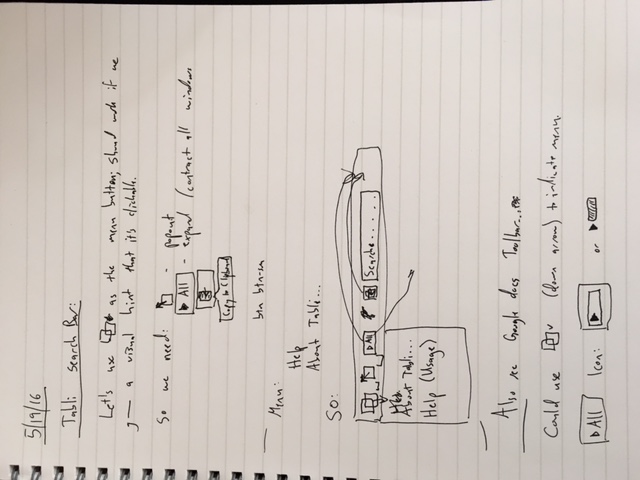 5/19/16
Tabli search Bar:
Let's use as the menu button; should work if we
g— a visual hint that it's clickable.
So we need: - popout
▶ All - expand / contract all windows
Copy to Clipboard
btn btn-sm
Menu:
Help
About Tabli...
So:
▷ All Search.....
About Tabli...
Help (Usage)
Also see Google docs Toolbar...
Could use (down arrow) to indicate menu.
▷ All Icon: ▶ or ▶